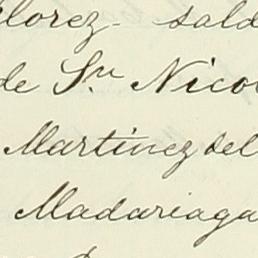 lorez - sald
de Sn. Nico
Martinez del
Madariaga